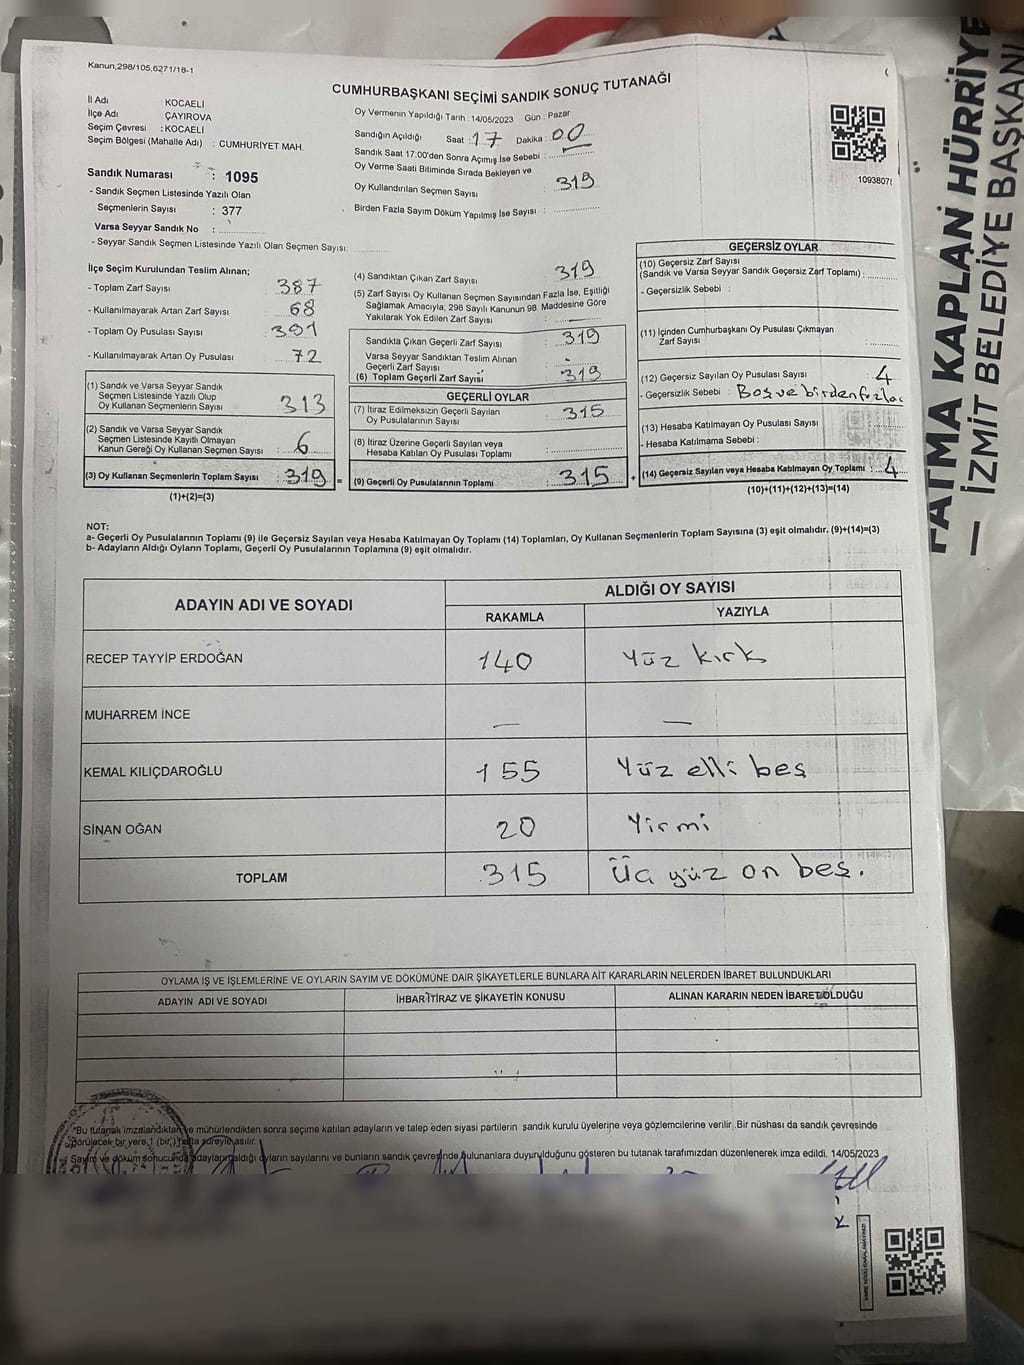 Kanun,298/105,6271/18-1
CUMHURBAŞKANI SEÇİMİ SANDIK SONUÇ TUTANAĞI
İl Adı KOCAELİ
İlçe Adı ÇAYIROVA
Seçim Çevresi : KOCAELİ
Seçim Bölgesi (Mahalle Adı) : CUMHURİYET MAH.
Sandık Numarası : 1095
- Sandık Seçmen Listesinde Yazılı Olan
Seçmenlerin Sayısı : 377
Varsa Seyyar Sandık No :
- Seyyar Sandık Seçmen Listesinde Yazılı Olan Seçmen Sayısı:
Oy Vermenin Yapıldığı Tarih : 14/05/2023 Gün : Pazar
Sandığın Açıldığı Saat : 17 Dakika : 00
Sandık Saat 17:00'den Sonra Açımış İse Sebebi :
Oy Verme Saati Bitiminde Sırada Bekleyen ve
Oy Kullandırılan Seçmen Sayısı : 319
Birden Fazla Sayım Döküm Yapılmış İse Sayısı :
1093807
İlçe Seçim Kurulundan Teslim Alınan;
- Toplam Zarf Sayısı : 387
- Kullanılmayarak Artan Zarf Sayısı : 68
- Toplam Oy Pusulası Sayısı : 391
- Kullanılmayarak Artan Oy Pusulası : 72
(1) Sandık ve Varsa Seyyar Sandık
Seçmen Listesinde Yazılı Olup
Oy Kullanan Seçmenlerin Sayısı : 313
(2) Sandık ve Varsa Seyyar Sandık
Seçmen Listesinde Kayıtlı Olmayan
Kanun Gereği Oy Kullanan Seçmen Sayısı : 6
(3) Oy Kullanan Seçmenlerin Toplam Sayısı : 319 =
(1)+(2)=(3)
(4) Sandıktan Çıkan Zarf Sayısı : 319
(5) Zarf Sayısı Oy Kullanan Seçmen Sayısından Fazla İse, Eşitliği
Sağlamak Amacıyla; 298 Sayılı Kanunun 98. Maddesine Göre
Yakılarak Yok Edilen Zarf Sayısı : —
Sandıkta Çıkan Geçerli Zarf Sayısı : 319
Varsa Seyyar Sandıktan Teslim Alınan
Geçerli Zarf Sayısı :
(6) Toplam Geçerli Zarf Sayısı : 319
GEÇERLİ OYLAR
(7) İtiraz Edilmeksizin Geçerli Sayılan
Oy Pusulalarının Sayısı : 315
(8) İtiraz Üzerine Geçerli Sayılan veya
Hesaba Katılan Oy Pusulası Toplamı :
(9) Geçerli Oy Pusulalarının Toplamı : 315 +
GEÇERSİZ OYLAR
(10) Geçersiz Zarf Sayısı
(Sandık ve Varsa Seyyar Sandık Geçersiz Zarf Toplamı) :
- Geçersizlik Sebebi :
(11) İçinden Cumhurbaşkanı Oy Pusulası Çıkmayan
Zarf Sayısı :
(12) Geçersiz Sayılan Oy Pusulası Sayısı : 4
- Geçersizlik Sebebi : Boş ve birden fazla
(13) Hesaba Katılmayan Oy Pusulası Sayısı :
- Hesaba Katılmama Sebebi :
(14) Geçersiz Sayılan veya Hesaba Katılmayan Oy Toplamı : 4
(10)+(11)+(12)+(13)=(14)
NOT:
a- Geçerli Oy Pusulalarının Toplamı (9) ile Geçersiz Sayılan veya Hesaba Katılmayan Oy Toplamı (14) Toplamları, Oy Kullanan Seçmenlerin Toplam Sayısına (3) eşit olmalıdır. (9)+(14)=(3)
b- Adayların Aldığı Oyların Toplamı, Geçerli Oy Pusulalarının Toplamına (9) eşit olmalıdır.
ADAYIN ADI VE SOYADI ALDIĞI OY SAYISI
RAKAMLA YAZIYLA
RECEP TAYYİP ERDOĞAN 140 Yüz kırk
MUHARREM İNCE — —
KEMAL KILIÇDAROĞLU 155 Yüz elli beş
SİNAN OĞAN 20 Yirmi
TOPLAM 315 Üç yüz on beş.
OYLAMA İŞ VE İŞLEMLERİNE VE OYLARIN SAYIM VE DÖKÜMÜNE DAİR ŞİKAYETLERLE BUNLARA AİT KARARLARIN NELERDEN İBARET BULUNDUKLARI
ADAYIN ADI VE SOYADI İHBAR İTİRAZ VE ŞİKAYETİN KONUSU ALINAN KARARIN NEDEN İBARET OLDUĞU
*Bu tutanak imzalandıktan ve mühürlendikten sonra seçime katılan adayların ve talep eden siyasi partilerin sandık kurulu üyelerine veya gözlemcilerine verilir. Bir nüshası da sandık çevresinde
görülecek bir yere 1 (bir) hafta süreyle asılır.
Sayım ve döküm sonucunda adayların aldığı oyların sayılarını ve bunların sandık çevresinde bulunanlara duyurulduğunu gösteren bu tutanak tarafımızdan düzenlenerek imza edildi. 14/05/2023
FATMA KAPLAN HÜRRİYE
— İZMİT BELEDİYE BAŞKANI